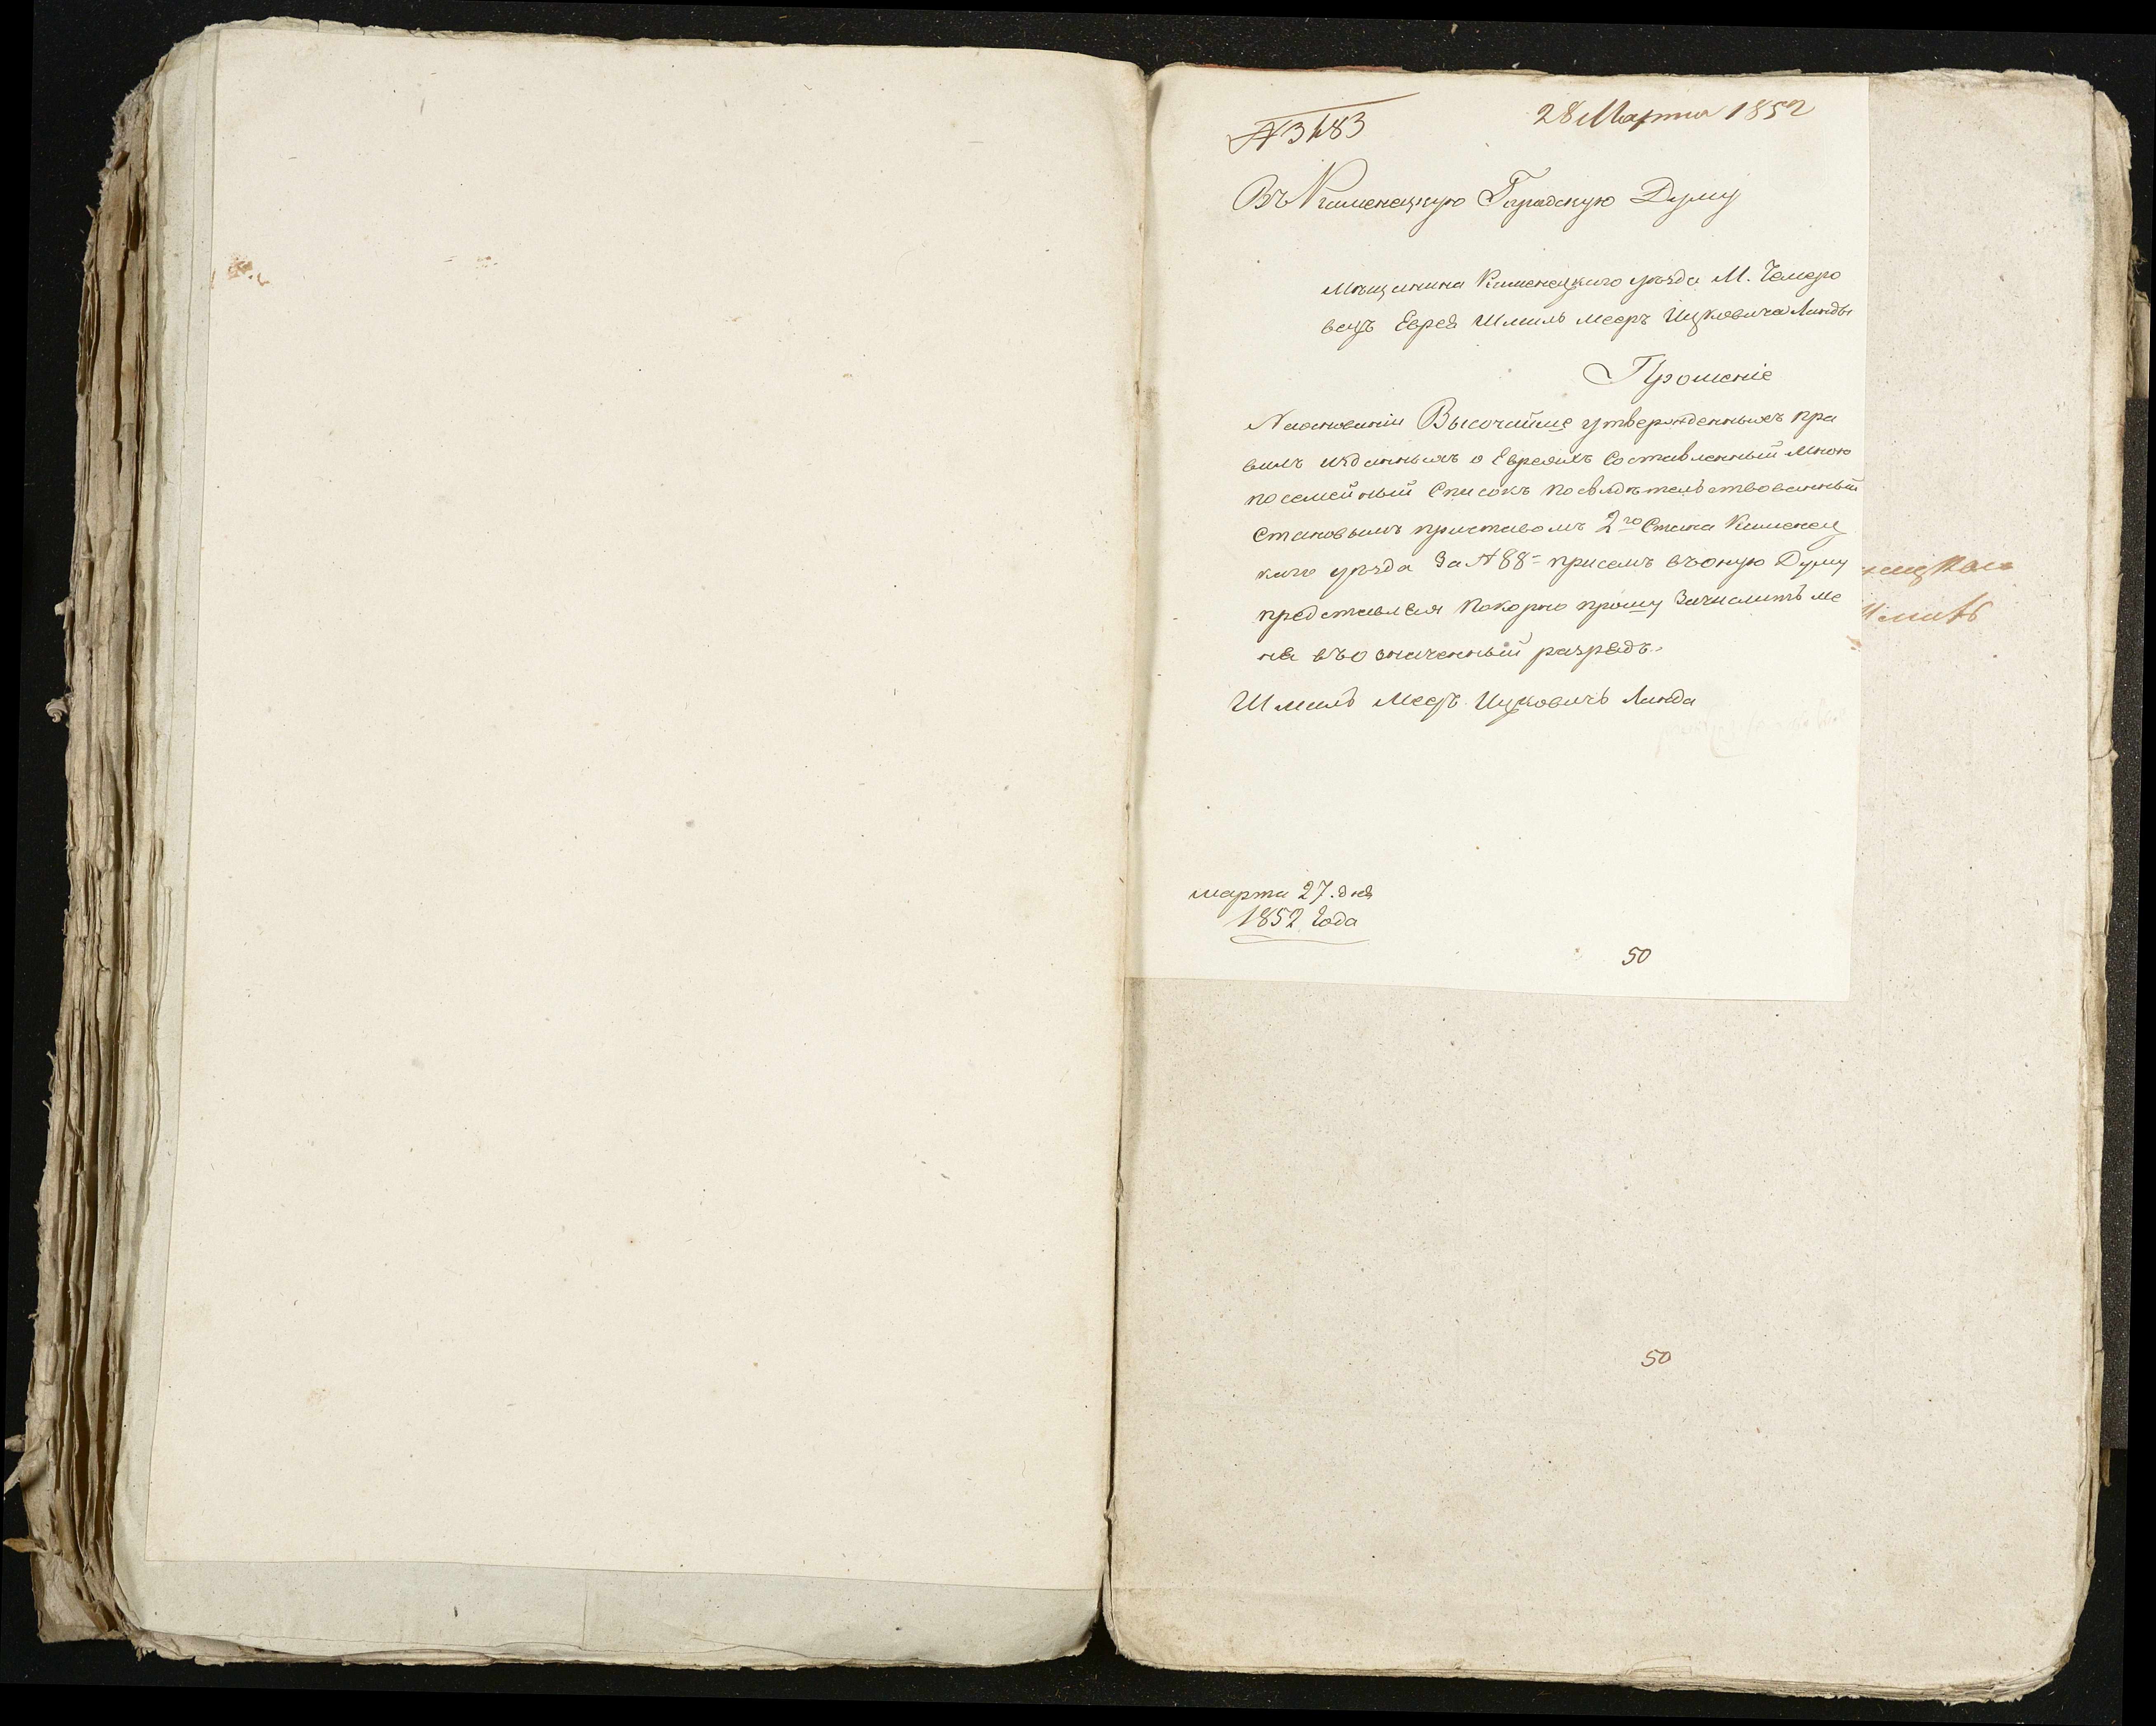 № 3483
28 Марта 1852
Въ Каменецкую Городскую Думу
Мѣщанина Каменецкаго уѣзда М. Чемеро
вецъ Еврея Шмиль Мееръ Ицковича Линды
Прошеніе
Наосновании Высочайше утвержденныхъ пра
вилъ изданныхъ о Евреяхъ Составленный мною
посемейный Списокъ посвидѣтельствованный
Становымъ приставомъ 2го Стана Каменец
каго уѣзда За № 88 присемъ въоную Думу
представляя Покорно прошу Зачислить ме
ня въозначенный разрядъ.
Шмиль Меер Ицковичъ Линда
марта 27. дня
1852 Года
50
50